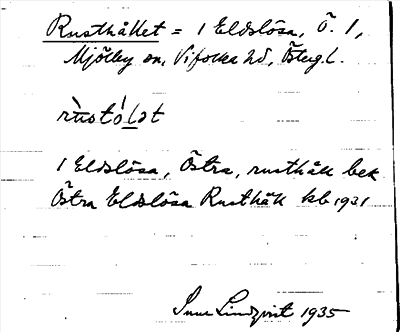 Rusthållet = 1 Eldslösa, Ö. 1,
Mjölby sn, Vifolka hd, Östergl.
rùstól̲ət
1 Eldslösa, Östra, rusthåll bek
Östra Eldslösa Rusthåll kb 1931
Sune Lindqvist 1935